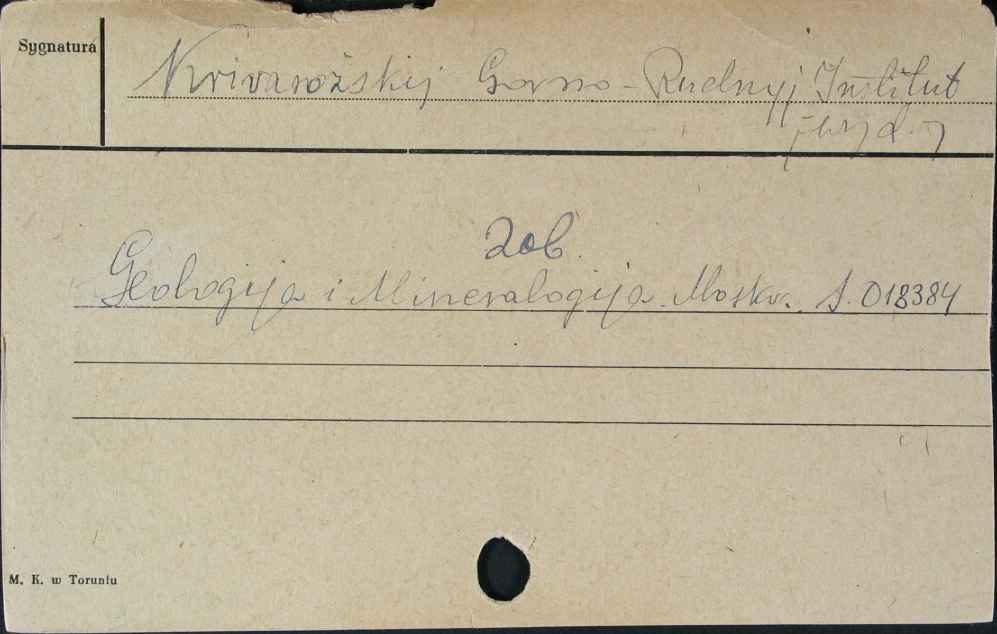 Sygnatura
Krivarožskij Gorno-Rudnyj Institut
[wyd.]
Zob.
Geologija i Mineralogija. Moskv. S. 018384
M. K. w Toruniu